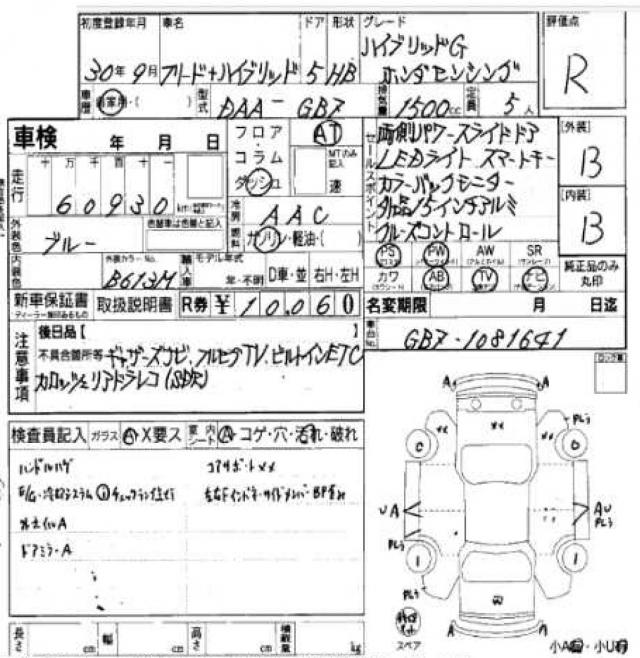 初度登録年月 車名 ドア 形状 グレード 評価点
30年9月 フリード+ハイブリッド 5 HB ハイブリッドG
ホンダセンシング
R
車歴 自家用・( ) 型式 DAA-GB7 排気量 1500cc 定員 5人
車検 年 月 日
フロア・コラム・ダッシュ AT
MTのみ記入 速
セールスポイント
両側パワースライドドア
LEDライト スマートキー
カラーバックモニター
外品15インチアルミ
クルーズコントロール
[外装] B
[内装] B
走行 十 万 千 百 十 一
60930 km
冷房 AAC
燃料 ガソリン・軽油・( )
外装色 ブルー
色替車は色番と記入
内装色 外装カラーNo. B613M
輸入車 モデル年式 年・不明 D車・並 右H・左H
PS PW AW SR
カワ AB TV ナビ
純正品のみ丸印
新車保証書 取扱説明書 R券 ¥10,060
ディーラー無印あるもの
名変期限 月 日迄
車台No. GB7-1081641
注意事項
後日品【 】
不具合箇所等 ギャザーズナビ、フルセグTV、ビルトインETC
カロッツェリアドラレコ(SDR)
検査員記入 ガラス A・X要ス 室内シート A・コゲ・穴・汚れ・破れ
ハンドルハゲ コアサポートXX
E/G・冷却システム チェックランプ点灯
外ホイルA
ドアミラーA
A A
XX XX
0 0
UA AU
1 1
W
スペア
小A・小U
長さ cm 幅 cm 高さ cm 積載量 kg